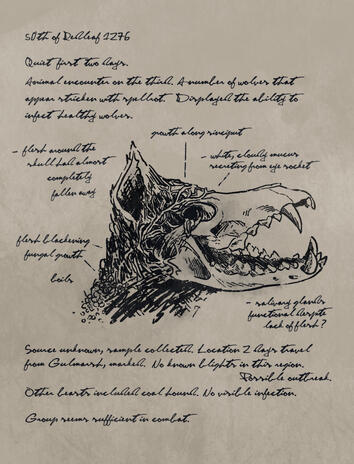 30th of Redleaf 1276
Quiet first two days.
Animal encounter on the third. A number of wolves that
appear stricken with spellrot. Displayed the ability to
infect healthy wolves.
growth along sinciput
- flesh around the
skull had almost
completely
fallen away
- white, cloudy mucus
secreting from eye socket
flesh blackening
fungal growth
boils
- salivary glands
functional despite
lack of flesh?
Source unknown, sample collected. Location 2 days travel
from Gulmarsh, marked. No known blights in this region.
Possible outbreak.
Other beasts included coal hound. No visible infection.
Group seems sufficient in combat.